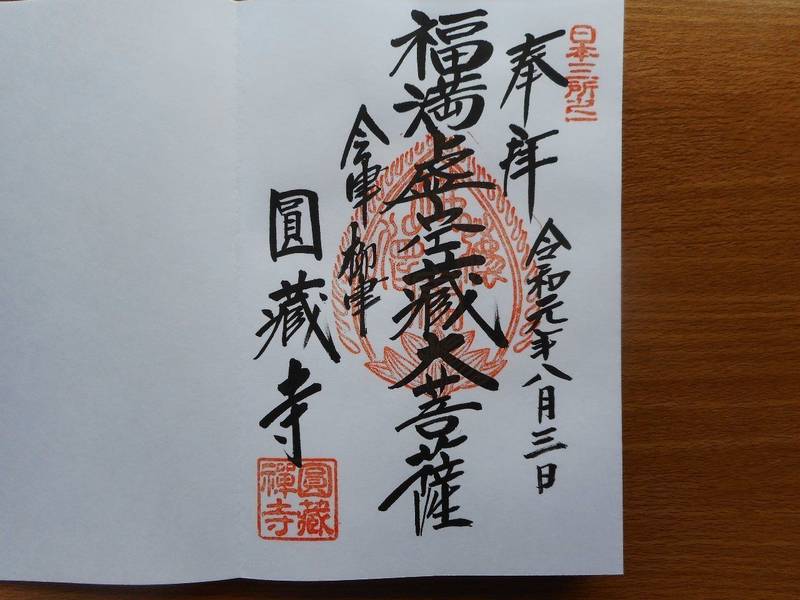 日本三所之一
奉拝
令和元年八月三日
福満虚空蔵大菩薩
会津柳津
圓藏寺
圓藏
禪寺